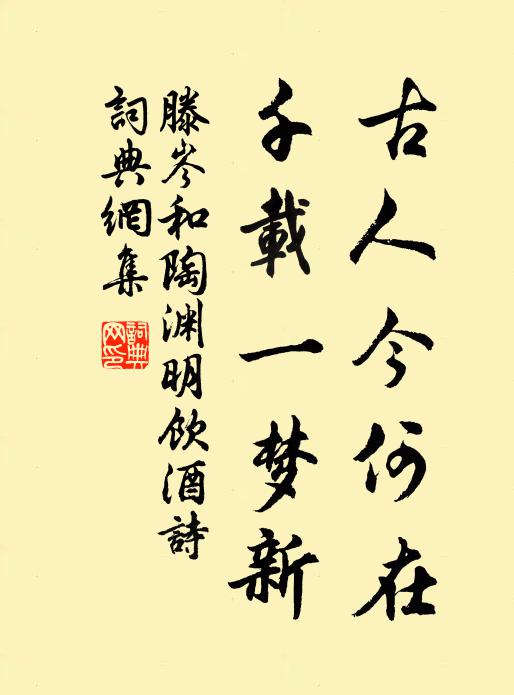 古人今何在
千載一梦新
滕岑和陶渊明飲酒詩
詞典網集
詞典网印